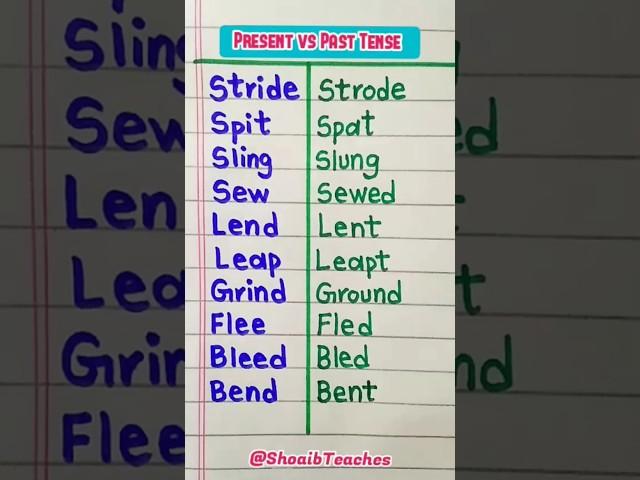 PRESENT VS PAST TENSE
Stride Strode
Spit Spat
Sling Slung
Sew Sewed
Lend Lent
Leap Leapt
Grind Ground
Flee Fled
Bleed Bled
Bend Bent
@ShoaibTeaches